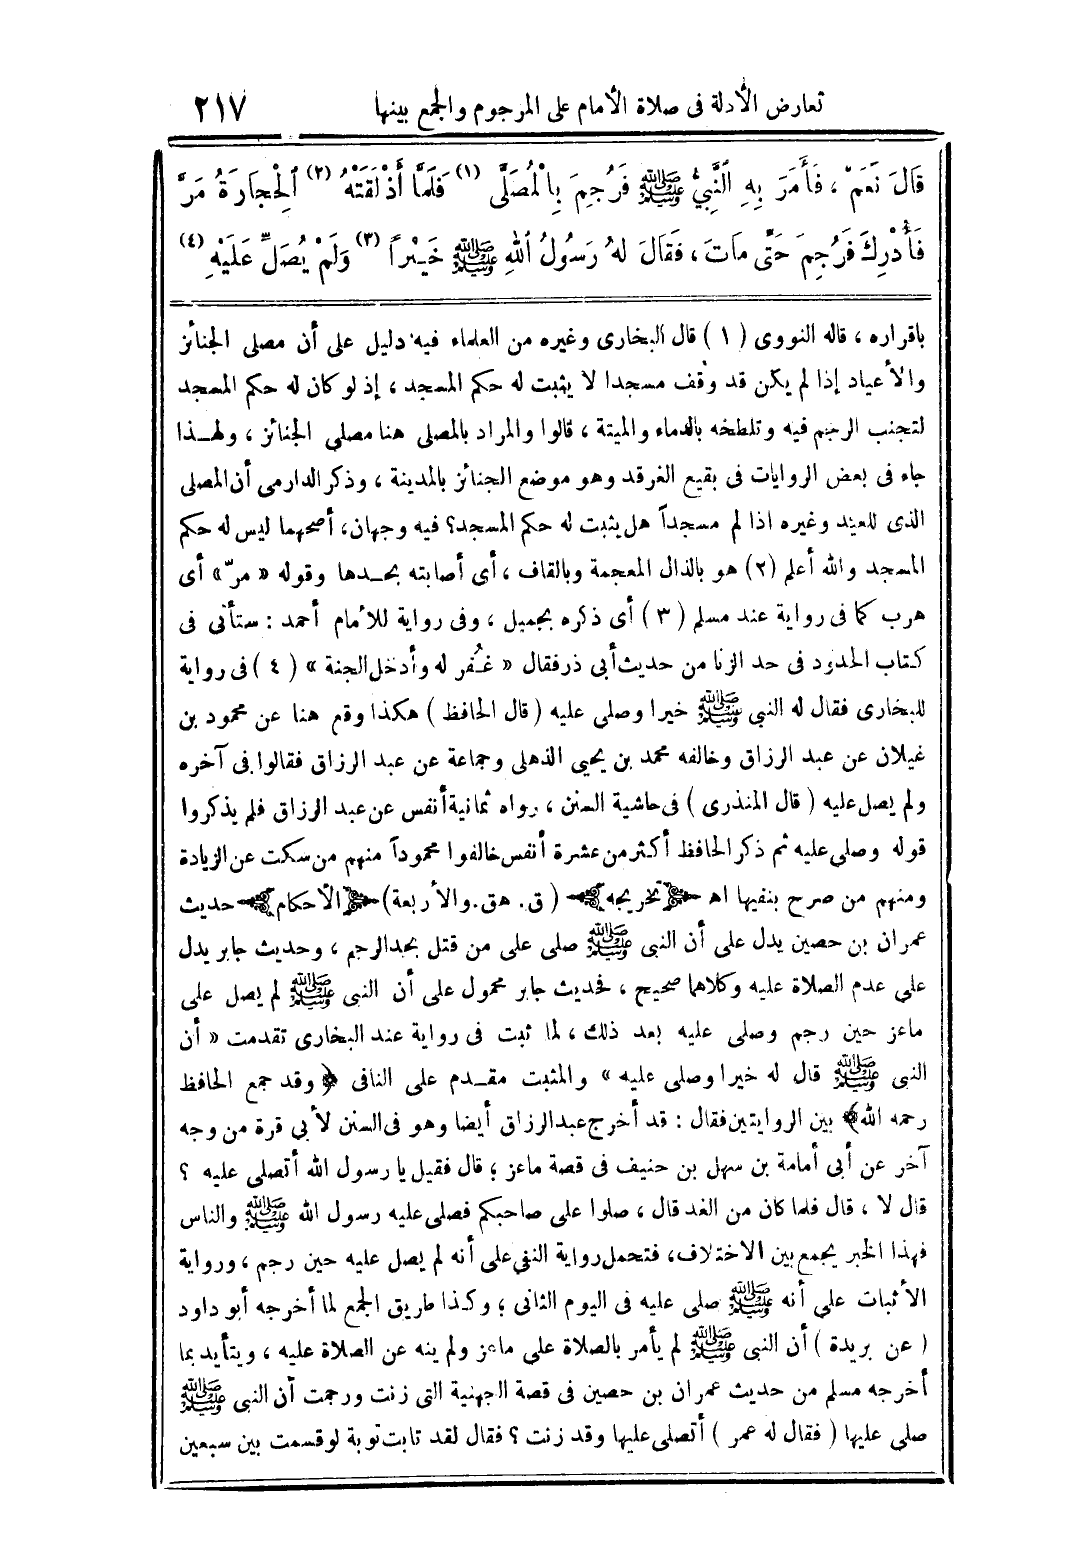 تعارض الأدلة فى صلاة الأمام على المرجوم والجمع بينها ٢١٧
قَالَ نَعَمْ ، فَأَمَرَ بِهِ النَّبِيُّ ﷺ فَرُجِمَ بِالْمُصَلَّى (١) فَلَمَّا أَذْلَقَتْهُ (٢) الْحِجَارَةُ مَرَّ
فَأُدْرِكَ فَرُجِمَ حَتَّى مَاتَ ، فَقَالَ لَهُ رَسُولُ اللهِ ﷺ خَيْراً (٣) وَلَمْ يُصَلِّ عَلَيْهِ (٤)
باقراره ، قاله النووى (١) قال البخارى وغيره من العلماء فيه دليل على أن مصلى الجنائز
والأعياد إذا لم يكن قد وُقف مسجدا لا يثبت له حكم المسجد ، إذ لو كان له حكم المسجد
لتجنب الرجم فيه وتلطخه بالدماء والميتة ، قالوا والمراد بالمصلى هنا مصلى الجنائز ، ولهـذا
جاء فى بعض الروايات فى بقيع الغرقد وهو موضع الجنائز بالمدينة ، وذكر الدارمى أن المصلى
الذى للعيد وغيره اذا لم مسجداً هل يثبت له حكم المسجد؟ فيه وجهان، أصحهما ليس له حكم
المسجد والله أعلم (٢) هو بالذال المعجمة وبالقاف ، أى أصابته بحـدها وقوله « مرّ » أى
هرب كما فى رواية عند مسلم (٣) أى ذكره بجميل ، وفى رواية للأمام أحمد : ستأتى فى
كتاب الحدود فى حد الزنا من حديث أبى ذر فقال « غُفر له وأدخل الجنة » (٤) فى رواية
للبخارى فقال له النبى ﷺ خيرا وصلى عليه (قال الحافظ) هكذا وقع هنا عن محمود بن
غيلان عن عبد الرزاق وخالفه محمد بن يحيى الذهلى وجماعة عن عبد الرزاق فقالوا فى آخره
ولم يصل عليه (قال المنذرى) فى حاشية السنن ، رواه ثمانية أنفس عن عبد الرزاق فلم يذكروا
قوله وصلى عليه ثم ذكر الحافظ أكثر من عشرة أنفس خالفوا محموداً منهم من سكت عن الزيادة
ومنهم من صرح بنفيها اهـ تخريجه (ق. هق. والأربعة) الأحكام حديث
عمران بن حصين يدل على أن النبى ﷺ صلى على من قتل بحد الرجم ، وحديث جابر يدل
على عدم الصلاة عليه وكلاهما صحيح ، فحديث جابر محمول على أن النبى ﷺ لم يصل على
ماعز حين رجم وصلى عليه بعد ذلك ، لما ثبت فى رواية عند البخارى تقدمت « أن
النبى ﷺ قال له خيرا وصلى عليه » والمثبت مقـدم على النافى ﴿ وقد جمع الحافظ
رحمه الله﴾ بين الروايتين فقال : قد أخرج عبد الرزاق أيضا وهو فى السنن لأبى قرة من وجه
آخر عن أبى أمامة بن سهل بن حنيف فى قصة ماعز ؛ قال فقيل يا رسول الله أتصلى عليه ؟
قال لا ، قال فلما كان من الغد قال ، صلوا على صاحبكم فصلى عليه رسول الله ﷺ والناس
فهذا الخبر يجمع بين الاختلاف، فتحمل رواية النفى على أنه لم يصل عليه حين رجم ، ورواية
الأثبات على أنه ﷺ صلى عليه فى اليوم الثانى ؛ وكذا طريق الجمع لما أخرجه أبو داود
(عن بريدة) أن النبى ﷺ لم يأمر بالصلاة على ماعز ولم ينه عن الصلاة عليه ، ويتأيد بما
أخرجه مسلم من حديث عمران بن حصين فى قصة الجهنية التى زنت ورجمت أن النبى ﷺ
صلى عليها (فقال له عمر) أتصلى عليها وقد زنت ؟ فقال لقد تابت توبة لو قسمت بين سبعين